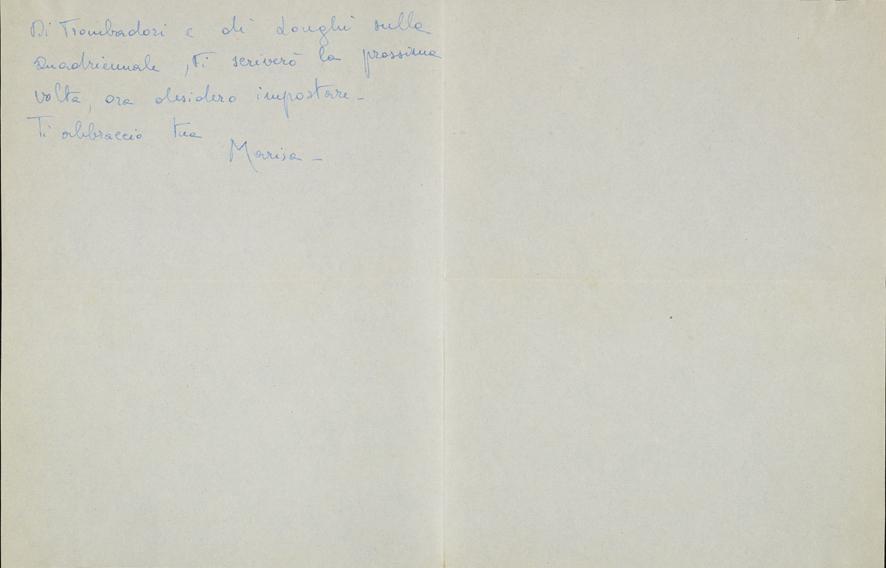 Di Trombadori e di Longhi sulla
Quadriennale, Ti scriverò la prossima
volta, ora desidero impostare-
Ti abbraccio tua
Marisa-